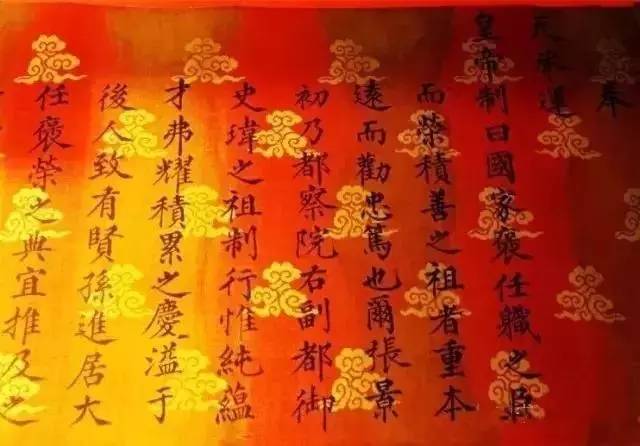 奉
天承運
皇帝制曰國家褒任職之臣
而榮積善之祖者重本
遠而勸忠篤也爾張景
初乃都察院右副都御
史瑋之祖制行惟純蘊
才弗耀積累之慶溢于
後人致有賢孫進居大
任褒榮之典宜推及之